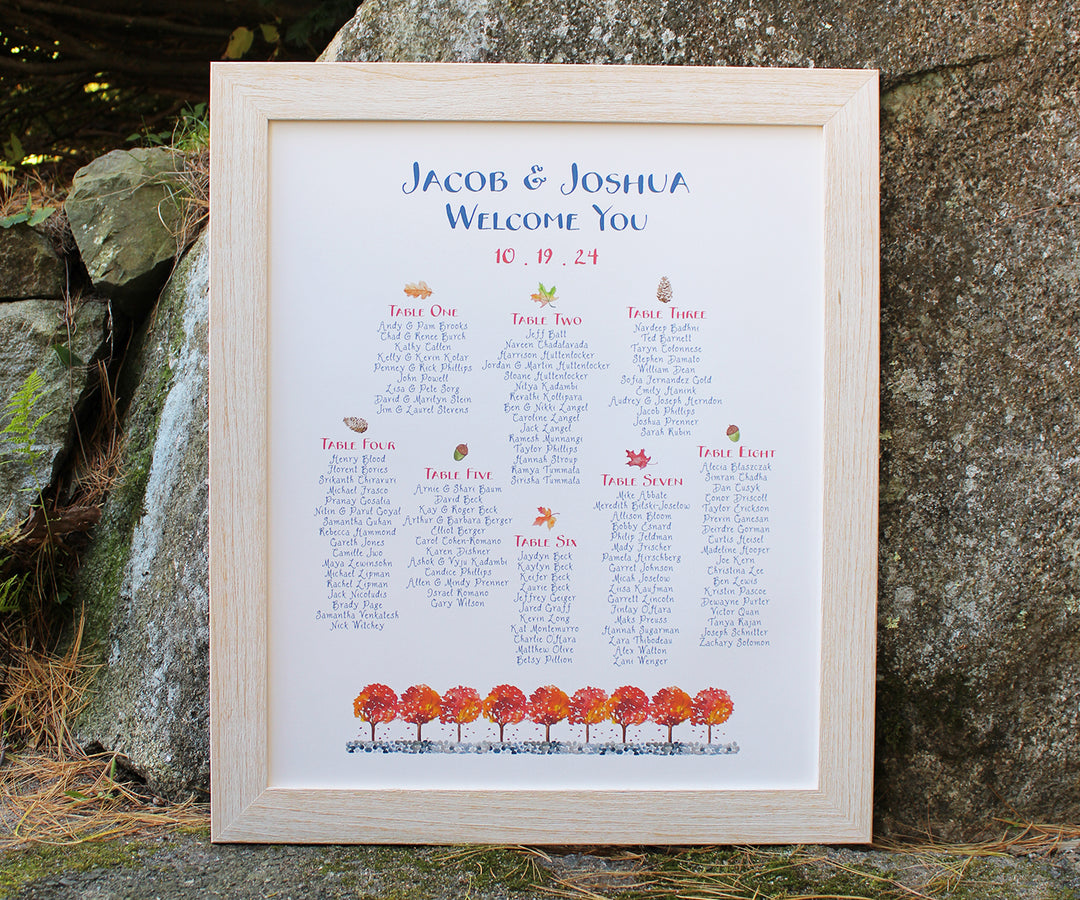 Jacob & Joshua
Welcome You
10 . 19 . 24
Table One
Andy & Pam Brooks
Chad & Renee Burch
Kathy Callen
Kelly & Kevin Kolar
Penney & Rick Phillips
John Powell
Lisa & Pete Sorg
David & Marilyn Stein
Jim & Laurel Stevens
Table Two
Jeff Batt
Naveen Chadalavada
Harrison Huttenlocker
Jordan & Martin Huttenlocker
Sloane Huttenlocker
Nitya Kadambi
Revathi Kollipara
Ben & Nikki Langel
Caroline Langel
Jack Langel
Ramesh Munnangi
Taylor Phillips
Hannah Stroup
Ramya Tummala
Sirisha Tummala
Table Three
Navdeep Badhni
Ted Barnett
Taryn Colonnese
Stephen Damato
William Dean
Sofia Fernandez Gold
Emily Hanink
Audrey & Joseph Herndon
Jacob Phillips
Joshua Penner
Sarah Rubin
Table Four
Henry Blood
Florent Bories
Srikanth Chiravuri
Michael Frasco
Pranay Gosalia
Nitin & Parul Goyal
Samantha Guhan
Rebecca Hammond
Gareth Jones
Camille Jwo
Maya Lewinsohn
Michael Lipman
Rachel Lipman
Jack Nicoludis
Brady Page
Samantha Venkatesh
Nick Witchey
Table Five
Arnie & Shari Baum
David Beck
Kay & Roger Beck
Arthur & Barbara Berger
Elliot Berger
Carol Cohen-Romano
Karen Dishner
Ashok & Vyju Kadambi
Candice Phillips
Allen & Mindy Prenner
Israel Romano
Gary Wilson
Table Six
Jaydyn Beck
Kaylyn Beck
Keifer Beck
Laurie Beck
Jeffrey Geiger
Jared Graff
Kevin Long
Kat Montemurro
Charlie O'Hara
Matthew Olive
Betsy Pillion
Table Seven
Mike Abbate
Meredith Bilski-Joselow
Allison Bloom
Bobby Esnard
Philip Feldman
Mady Frischer
Pamela Hirschberg
Garret Johnson
Micah Joselow
Liisa Kaufman
Garrett Lincoln
Finlay O'Hara
Maks Preuss
Hannah Sugarman
Lara Thibodeau
Alex Walton
Lani Wenger
Table Eight
Alecia Blaszczak
Simran Chadha
Dan Cusyk
Conor Driscoll
Taylor Erickson
Previn Ganesan
Deirdre Gorman
Curtis Heisel
Madeline Hooper
Joe Kern
Christina Lee
Ben Lewis
Kristin Pascoe
Dewayne Purter
Victor Quan
Tanya Rajan
Joseph Schnitter
Zachary Solomon